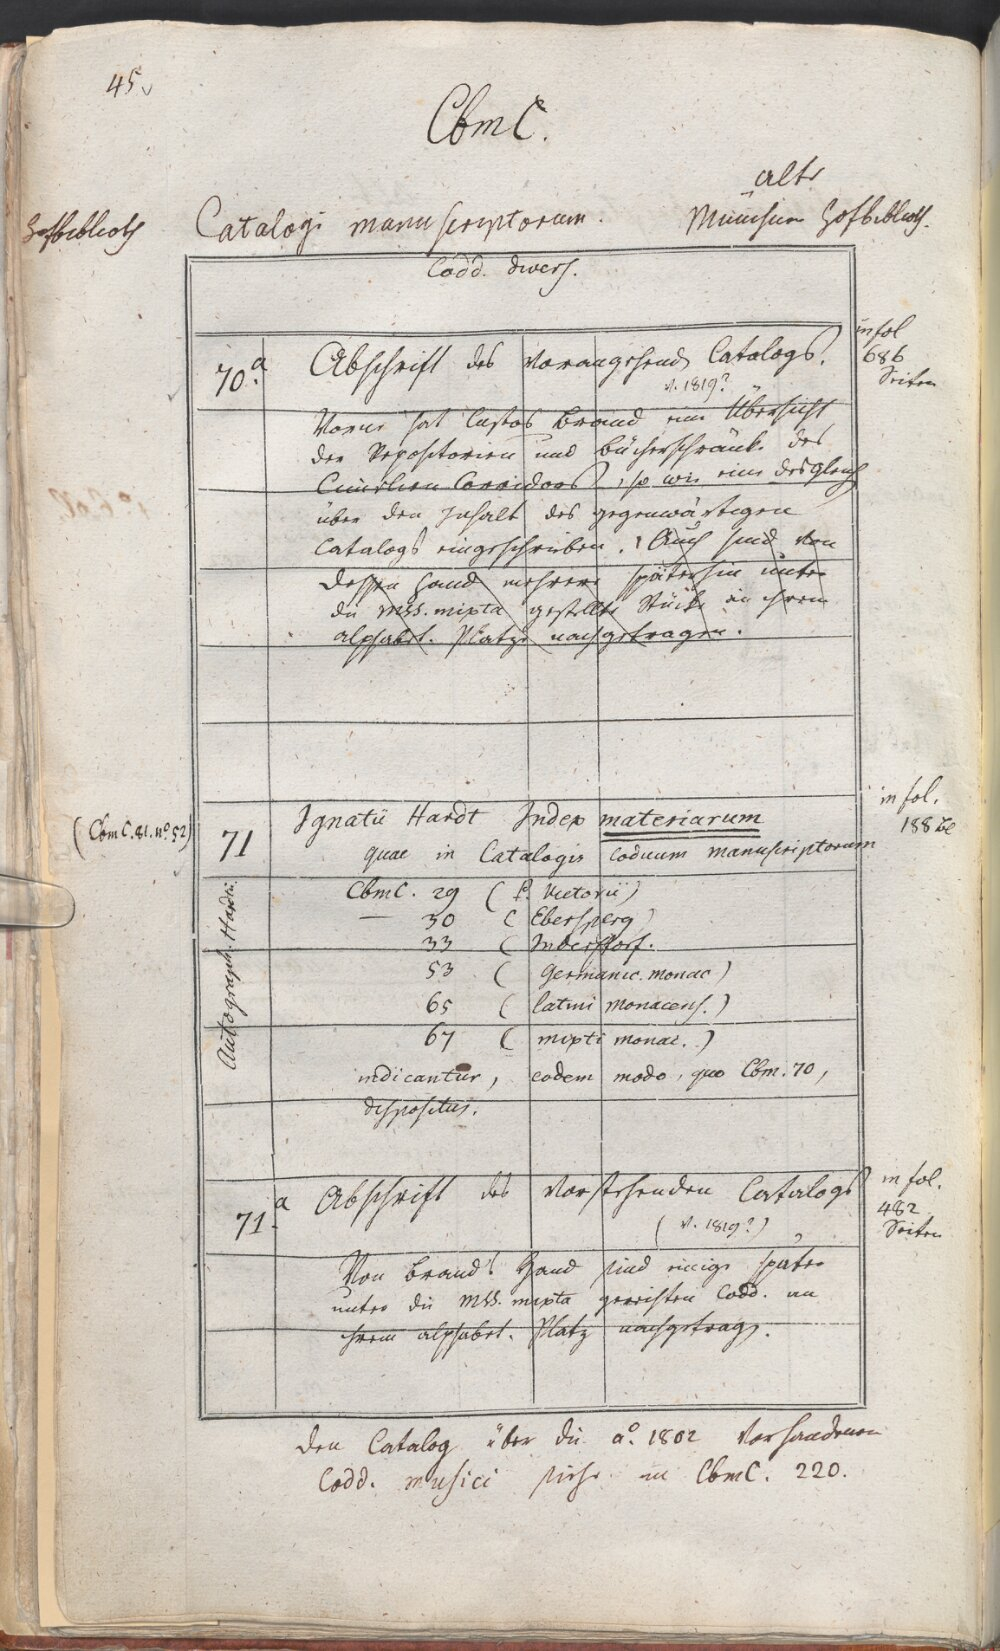 45.
CbmC.
alte
Hofbiblioth
Catalogi manuscriptorum.
Münchner Hofbiblioth.
Codd. divers.
in fol
686
Seiten
70.a
Abschrift des vorangehends Catalogs.
v. 1819?
Vorne hat Custos Brand eine Übersicht
der Repositorien und Bücherschränke des
Cimelien Corridors, so wie eine desgleich
über den Inhalt des gegenwärtigen
Catalogs eingeschrieben. Auch sind von
dessen Hand mehrere späterhin unter
die Mss. mixta gestellte Stücke in ihrem
alphabet. Platze nachgetragen.
in fol.
188 Bl
(CbmC. 81. no. 52)
71
Ignatii Hardt Index materiarum
quae in Catalogis codicum manuscriptorum
CbmC. 29 (P. Victorii)
— 30 (Ebersperg)
33 (Inderstorf.
53 (Germanic. monac)
65 (latini monacens.)
67 (mixti monac.)
indicantur, eodem modo, quo Cbm. 70,
dispositus.
Autograph. Hardtii.
in fol.
482
Seiten
71.a
Abschrift des vorstehenden Catalogs
(v. 1819?)
Von Brand's Hand sind einige später
unter die Mss. mixta gereihten Codd. an
ihrem alphabet. Platz nachgetrag.
Den Catalog über die ao. 1802 vorhandenen
Codd. musici siehe in CbmC. 220.